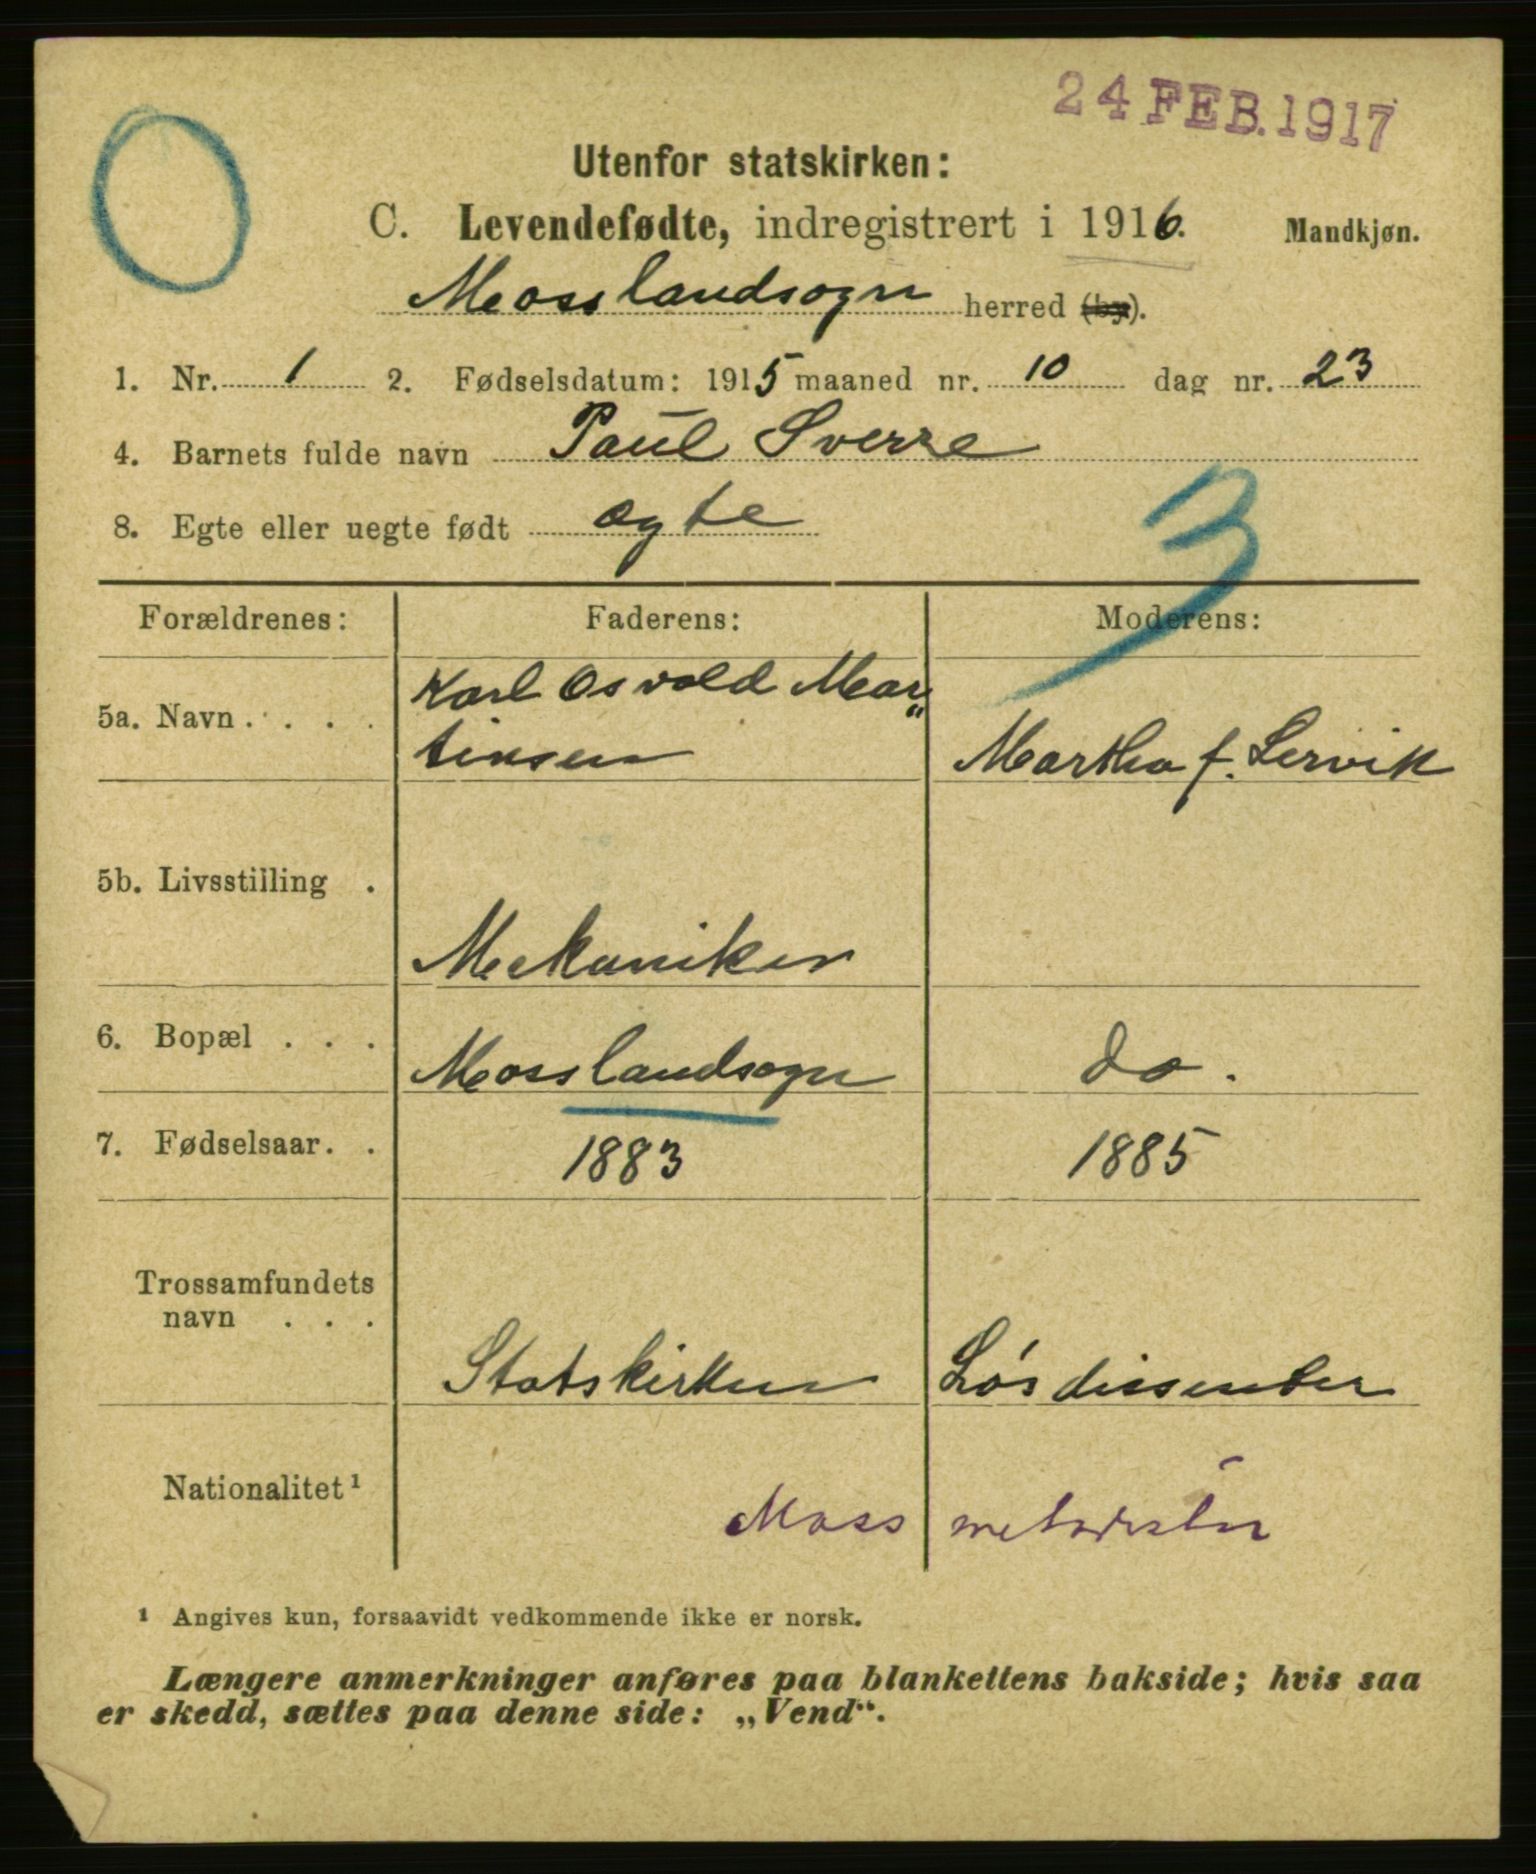 24 FEB. 1917
Utenfor statskirken:
C. Levendefødte, indregistrert i 1916. Mandkjøn.
Mosslandsogn herred (by).
1. Nr. 1 2. Fødselsdatum: 1915 maaned nr. 10 dag nr. 23
4. Barnets fulde navn Paul Sverre
8. Egte eller uegte født ægte
3
Forældrenes: Faderens: Moderens:
Karl Osvald Mar„
5a. Navn . . . . tinsen Martha f. Lervik
5b. Livsstilling .
Mekaniker
6. Bopæl . . . Mosslandsogn do.
7. Fødselsaar. . 1883 1885
Trossamfundets
navn . . . Statskirken Løsdissenter
Nationalitet¹
Moss metodister
¹ Angives kun, forsaavidt vedkommende ikke er norsk.
Længere anmerkninger anføres paa blankettens bakside; hvis saa
er skedd, sættes paa denne side: „Vend“.